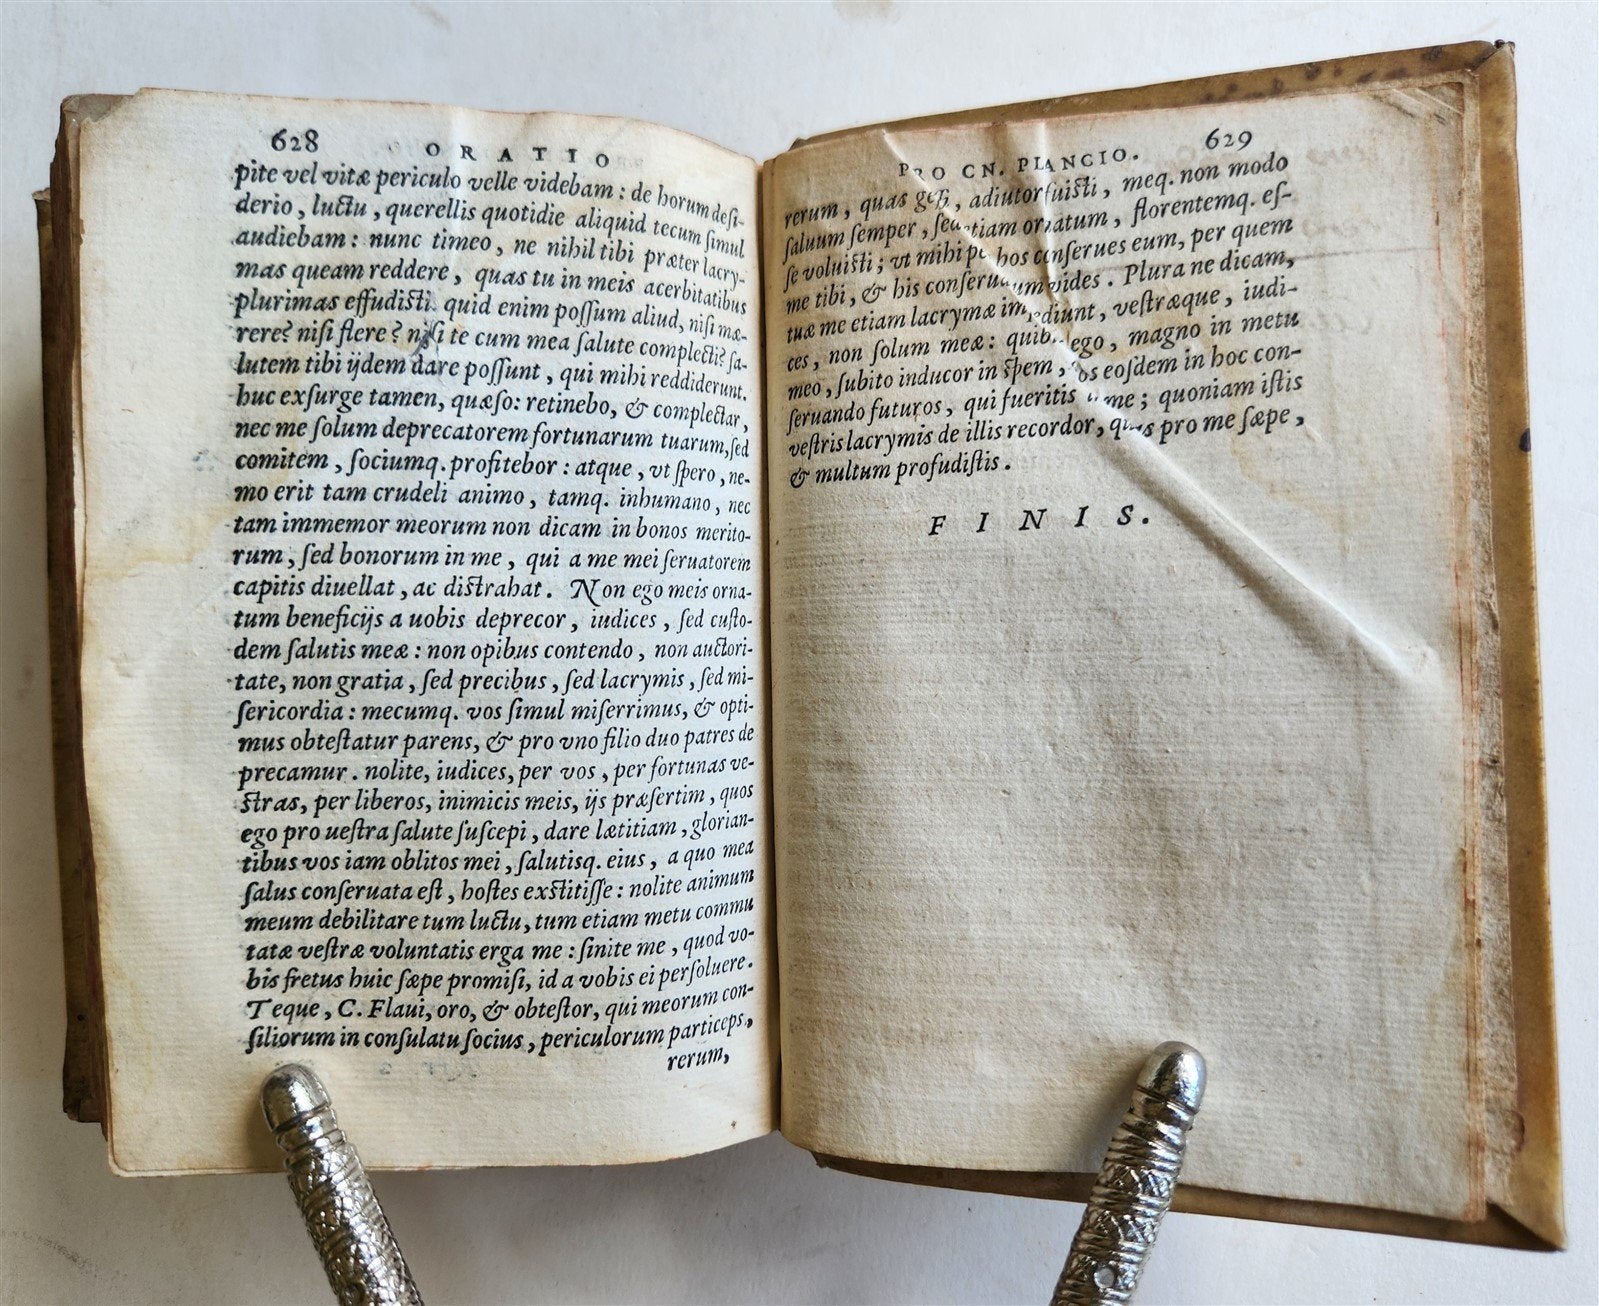 628
ORATIO
pite vel vitæ periculo velle videbam : de horum desi-
derio, luctu, querellis quotidie aliquid tecum simul
audiebam : nunc timeo, ne nihil tibi præter lacry-
mas queam reddere, quas tu in meis acerbitatibus
plurimas effudisti. quid enim possum aliud, nisi mæ-
rere? nisi flere? nisi te cum mea salute complecti? sa-
lutem tibi ijdem dare possunt, qui mihi reddiderunt.
huc exsurge tamen, quæso: retinebo, & complectar,
nec me solum deprecatorem fortunarum tuarum, sed
comitem, sociumq. profitebor : atque, vt spero, ne-
mo erit tam crudeli animo, tamq. inhumano, nec
tam immemor meorum non dicam in bonos merito-
rum, sed bonorum in me, qui a me mei seruatorem
capitis diuellat, ac distrahat. Non ego meis orna-
tum beneficijs a uobis deprecor, iudices, sed custo-
dem salutis meæ : non opibus contendo, non auctori-
tate, non gratia, sed precibus, sed lacrymis, sed mi-
sericordia : mecumq. vos simul miserrimus, & opti-
mus obtestatur parens, & pro vno filio duo patres de
precamur. nolite, iudices, per vos, per fortunas ve-
stras, per liberos, inimicis meis, ijs præsertim, quos
ego pro uestra salute suscepi, dare lætitiam, glorian-
tibus vos iam oblitos mei, salutisq. eius, a quo mea
salus conseruata est, hostes exstitisse : nolite animum
meum debilitare tum luctu, tum etiam metu commu
tatæ vestræ voluntatis erga me : sinite me, quod vo-
bis fretus huic sæpe promisi, id a vobis ei persoluere.
Teque, C. Flaui, oro, & obtestor, qui meorum con-
siliorum in consulatu socius, periculorum particeps,
rerum,
PRO CN. PLANCIO.
629
rerum, quas gessi, adiutor fuisti, meq. non modo
saluum semper, sed etiam ornatum, florentemq. es-
se voluisti ; vt mihi per hos conserues eum, per quem
me tibi, & his conseruatum vides. Plura ne dicam,
tuæ me etiam lacrymæ impediunt, vestræque, iudi-
ces, non solum meæ : quibus ego, magno in metu
meo, subito inducor in spem, vos eosdem in hoc con-
seruando futuros, qui fueritis in me ; quoniam istis
vestris lacrymis de illis recordor, quas pro me sæpe,
& multum profudistis.
FINIS.